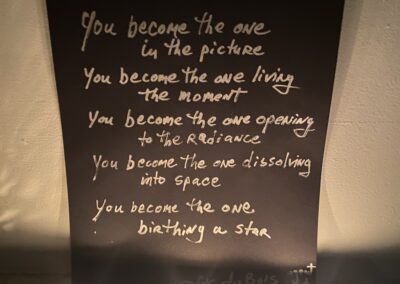 You become the one
in the picture
You become the one living
the moment
You become the one opening
to the Radiance
You become the one dissolving
into space
You become the one
birthing a star